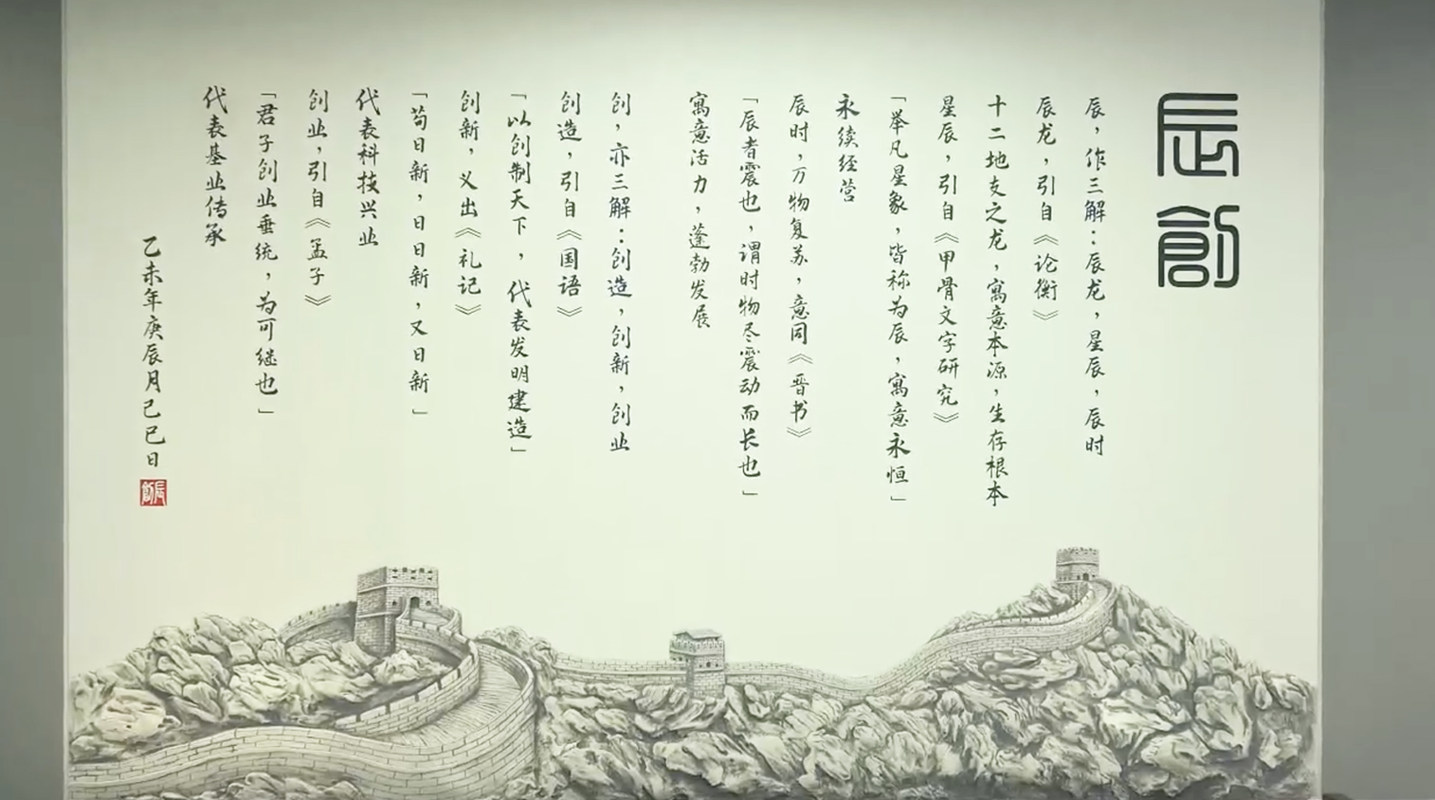 辰創
辰，作三解：辰龙，星辰，辰时
辰龙，引自《论衡》
十二地支之龙，寓意本源，生存根本
星辰，引自《甲骨文字研究》
「举凡星象，皆称为辰，寓意永恒」
永续经营
辰时，万物复苏，意同《晋书》
「辰者震也，谓时物尽震动而长也」
寓意活力，蓬勃发展
创，亦三解：创造，创新，创业
创造，引自《国语》
「以创制天下，代表发明建造」
创新，义出《礼记》
「苟日新，日日新，又日新」
代表科技兴业
创业，引自《孟子》
「君子创业垂统，为可继也」
代表基业传承
乙未年庚辰月己巳日
辰創